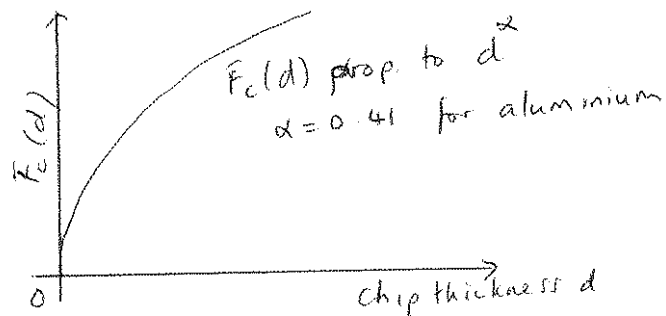 F_c(d) prop. to d^α
α = 0.41 for aluminium
F_c(d)
0
Chip thickness d